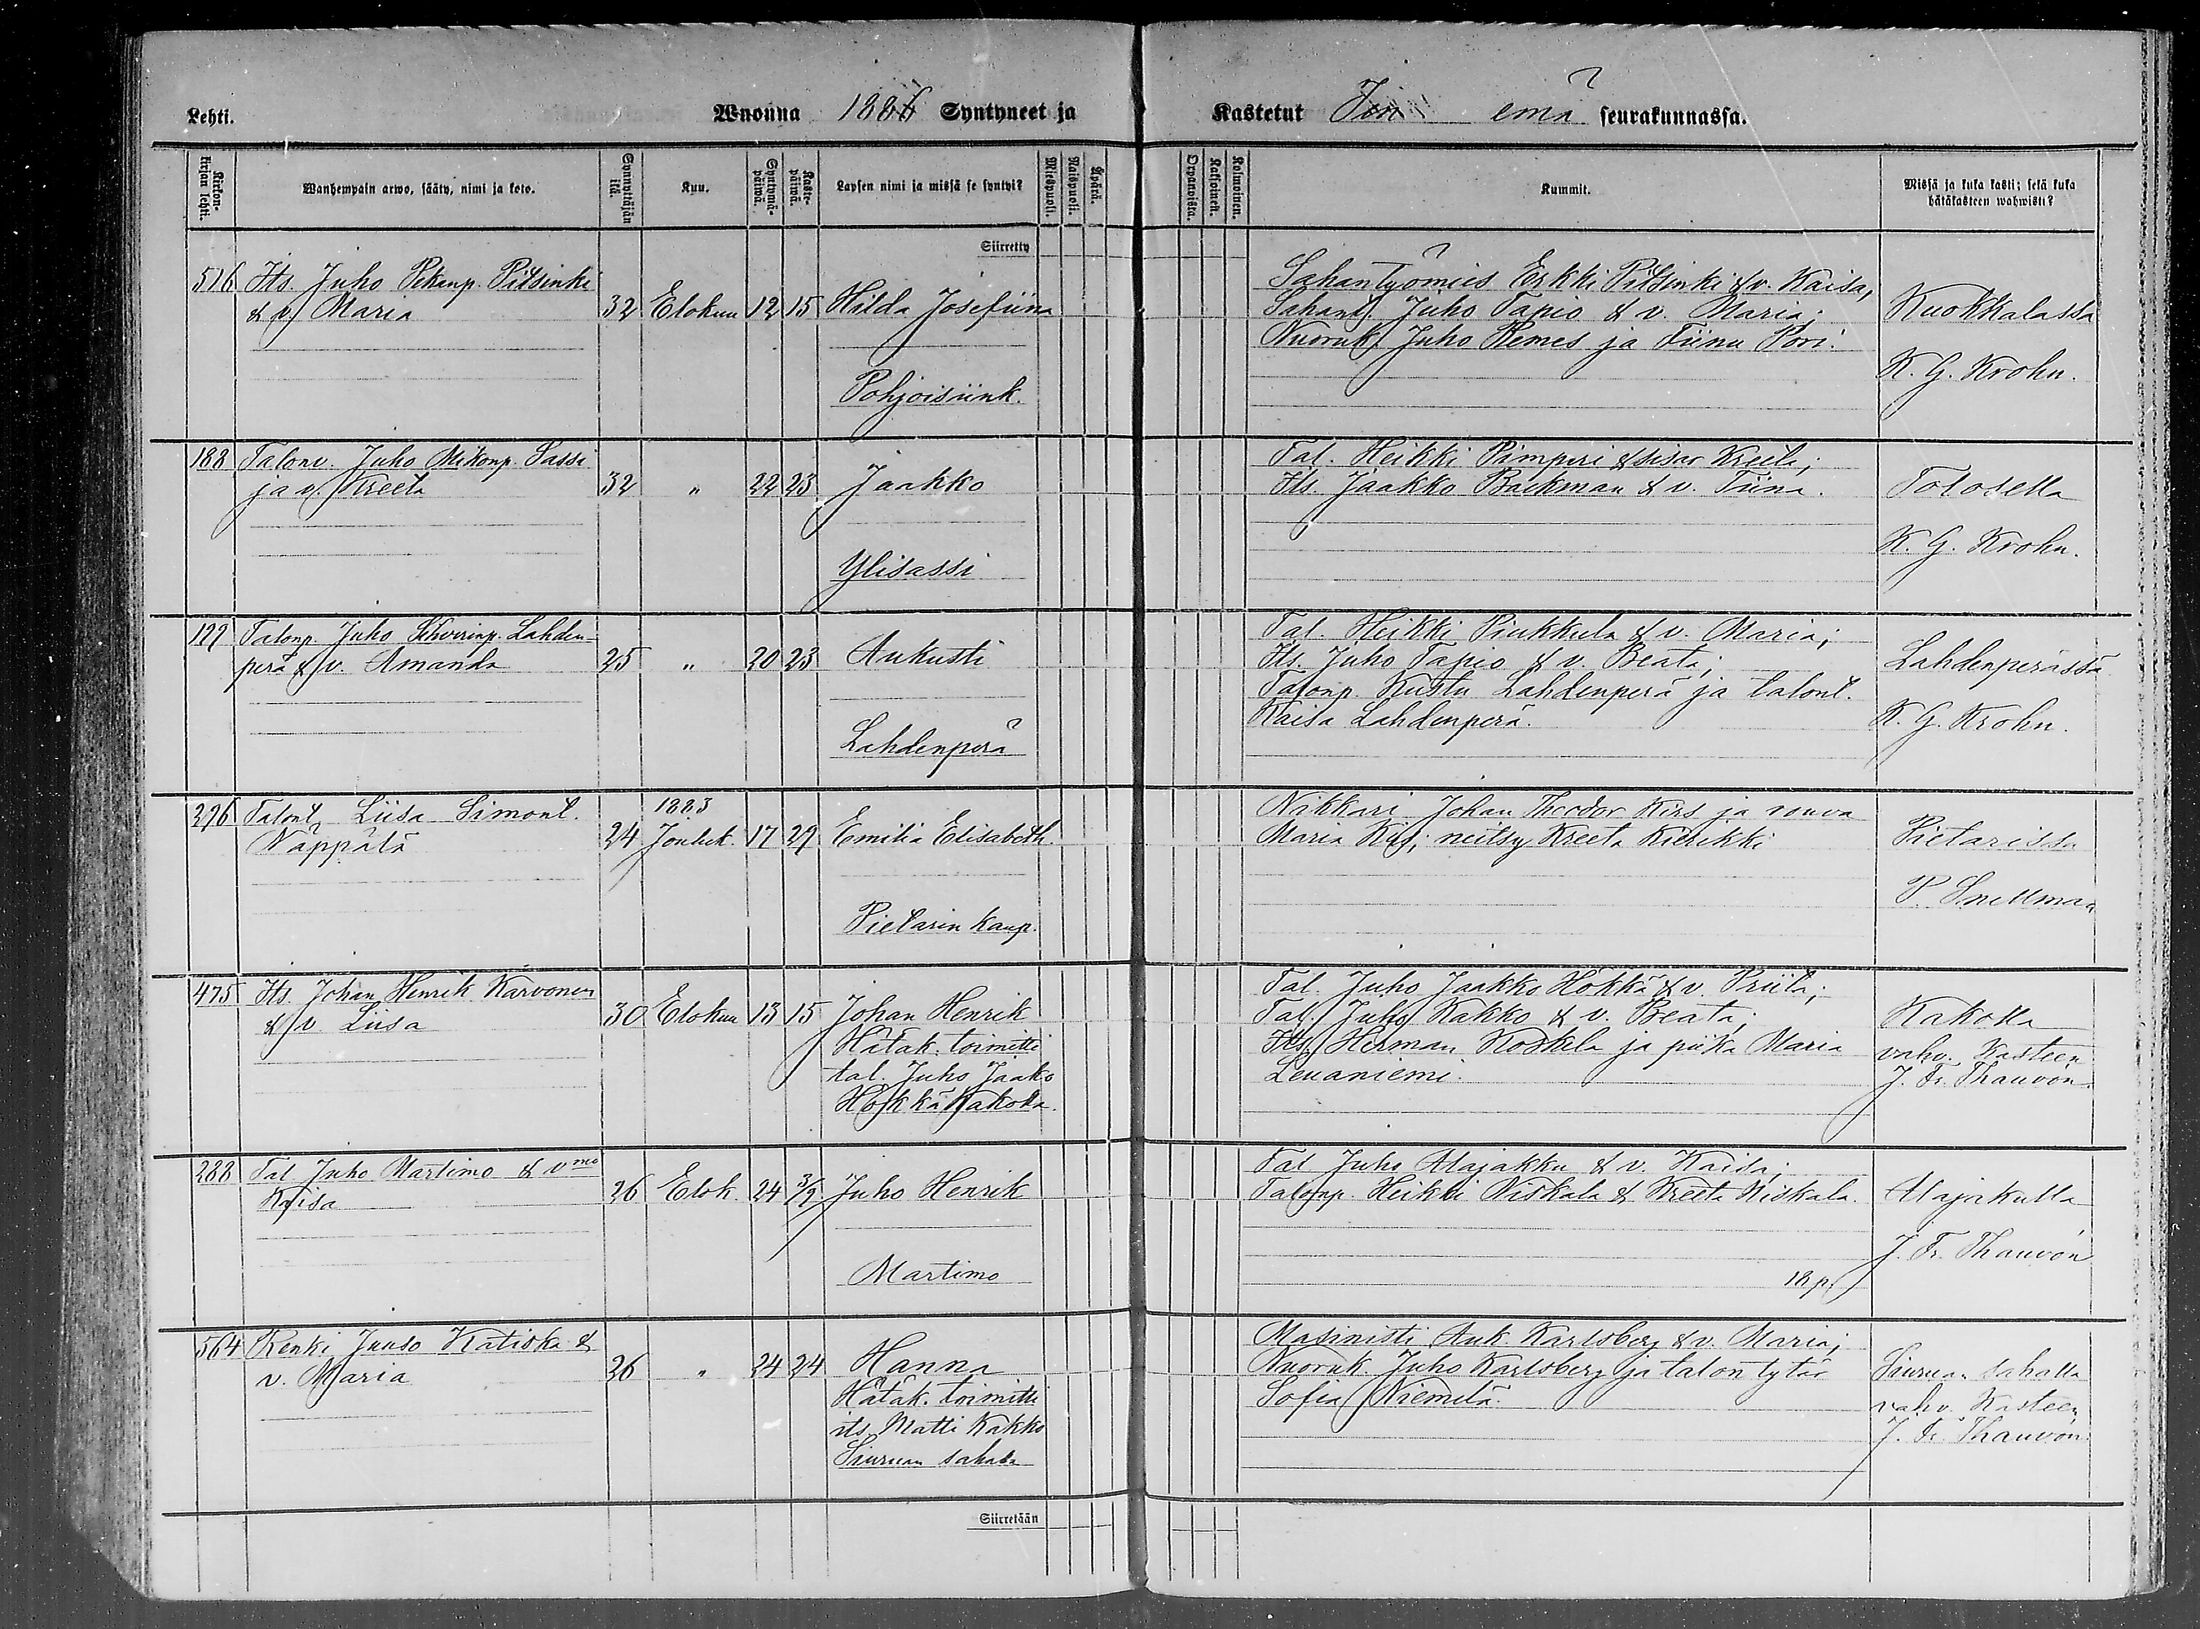 Lehti.
Wuonna 1886 Syntyneet ja
Kastetut Iin emä seurakunnassa.
Kirkon-
kirjan lehti.
Wanhempain arwo, sääty, nimi ja koto.
Synnyttäjän
ikä.
Kuu.
Syntymä-
päiwä.
Kaste-
päiwä.
Lapsen nimi ja missä se syntyi?
Miespuoli.
Naispuoli.
Äpärä.
Kaksoinen.
Kolmoinen.
Kummit.
Missä ja kuka kasti; sekä kuka
hätäkasteen wahwisti?
Siirretty
516 Its. Juho Pekanp. Pitsinki
& v. Maria 32 Elokuu 12 15 Hilda Josefiina
Pohjoisiink.
Sahantyömies Erkki Pitsinki & v. Kaisa,
Sahant. Juho Tapio & v. Maria;
Nuoruk. Juho Remes ja Tiina Pori.
Kuokkalassa
K. G. Krohn.
188 Talonp. Juho Mikonp. Sassi
ja v. Kreeta 32 " 22 23 Jaakko
Ylisassi
Tal. Heikki Pimperi & sisar Kreeta;
Its. Jaakko Backman & v. Tiina.
Tolosella
K. G. Krohn.
Talonp. Juho Lahden-
perä & v. Amanda 25 " 20 23 Aukusti
Lahdenperä
Tal. Heikki Pinkkula & v. Maria;
Its. Juho Tapio & v. Beata;
Talonp. Kustu Lahdenperä ja talont.
Kaisa Lahdenperä.
Lahdenperässä
K. G. Krohn.
296 Talont. Liisa Simont.
Näppälä 24 1883
Jouluk. 17 29 Emilia Elisabeth.
Pietarin kaup.
Nikkari Johan Theodor Kirs ja rouva
Maria Kirs; neitsy Kreeta Kierikki
Pietarissa
P. Snellman
475 Its. Johan Henrik Karvonen
& v Liisa 30 Elokuu 13 15 Johan Henrik
Hätäk. toimitti
tal. Juho Jaako
Hökkä Kakolla.
Tal. Juho Jaakko Hökkä & v. Priita;
Tal. Juho Kakko & v. Beata;
Its. Herman Koskela ja piika Maria
Leuaniemi.
Kakolla
vahv. Kasteen
J. Fr. Thauvón.
288 Tal Juho Martimo & vmo
Kaisa 26 Elok. 24 3/9 Juho Henrik
Martimo
Tal Juho Alajakku & v. Kaisa;
Talonp. Heikki Niskala & Kreeta Niskala.
18 p.
Alajakulla
J. Fr. Thauvón
564 Renki Juuso Katiska &
v. Maria 26 " 24 24 Hanna
Hätäk. toimitti
its. Matti Kakko
Siuruan sahala
Masinisti Auk. Karlsberg & v. Maria;
Nuoruk. Juho Karlsberg ja talontytär
Sofia Niemelä.
Siuruan sahalla
vahv. Kasteen
J. Fr. Thauvón.
Siirretään